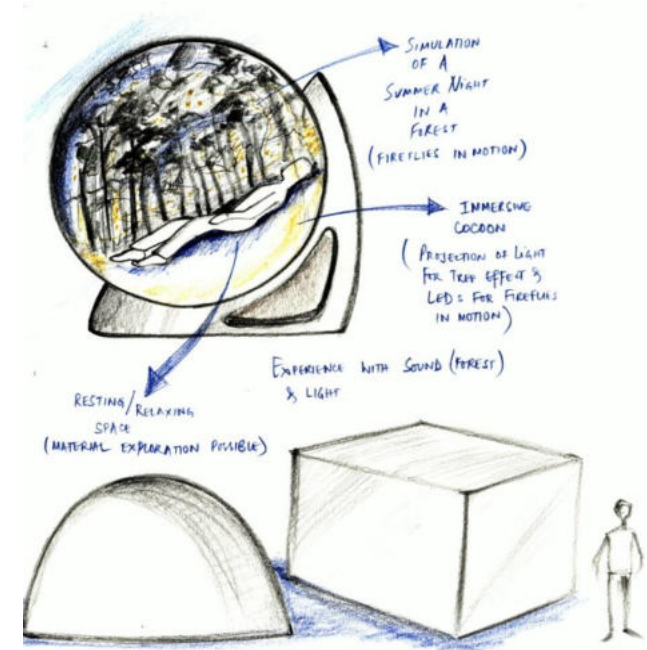 SIMULATION
OF A
SUMMER NIGHT
IN A
FOREST
(FIREFLIES IN MOTION)
IMMERSIVE
COCOON
(PROJECTION OF LIGHT
FOR TREE EFFECT &
LEDS FOR FIREFLIES
IN MOTION)
EXPERIENCE WITH SOUND (FOREST)
& LIGHT
RESTING/RELAXING
SPACE
(MATERIAL EXPLORATION POSSIBLE)